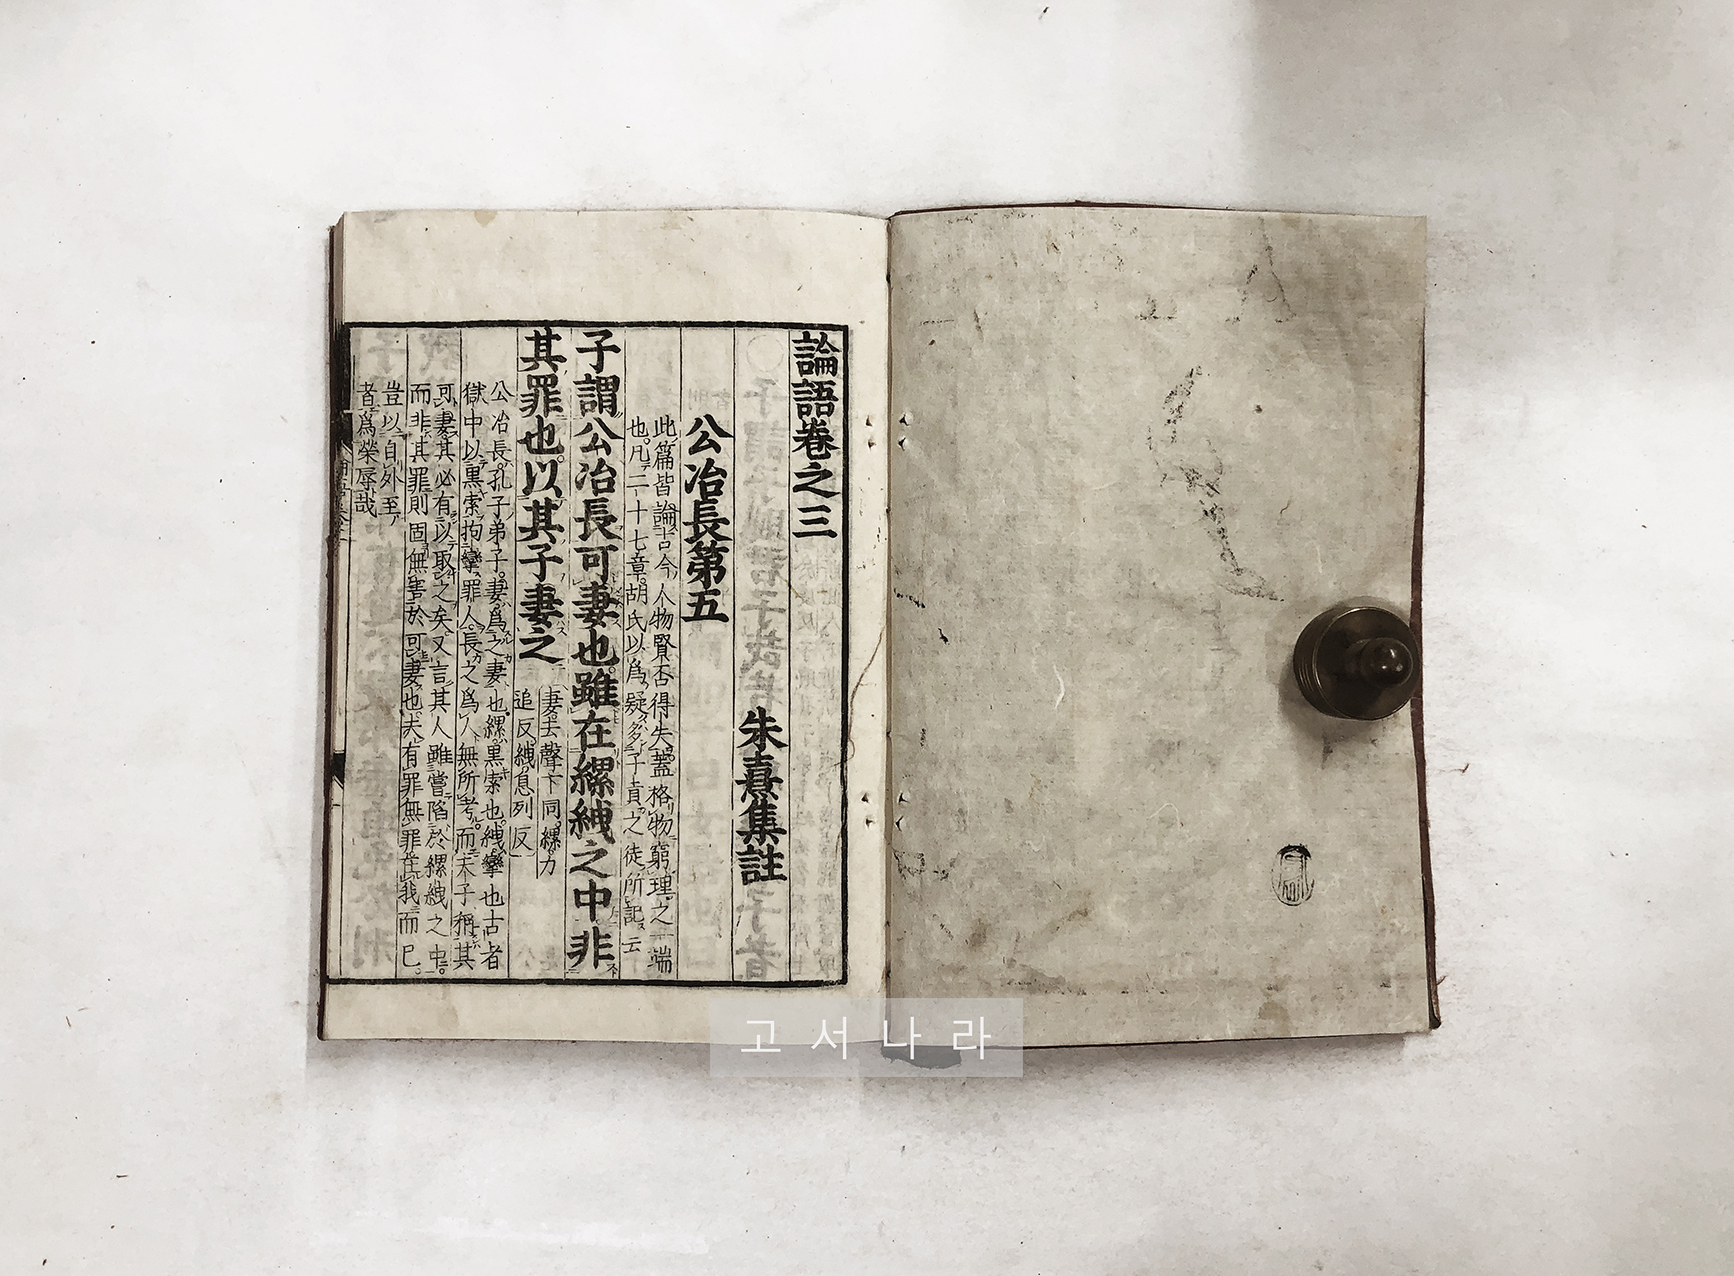 論語卷之三
朱熹集註
公冶長第五
此篇皆論古今人物賢否得失蓋格物窮理之一端
也凡二十七章胡氏以爲疑多子貢之徒所記云
子謂公冶長可妻也雖在縲絏之中非
其罪也以其子妻之
妻去聲下同縲力
追反絏息列反
公冶長孔子弟子妻爲之妻也縲黒索也絏攣也古者
獄中以黒索拘攣罪人長之爲人無所考而夫子稱其
可妻其必有以取之矣又言其人雖嘗陷於縲絏之中
而非其罪則固無害於可妻也夫有罪無罪在我而已
豈以自外至
者爲榮辱哉
고서나라